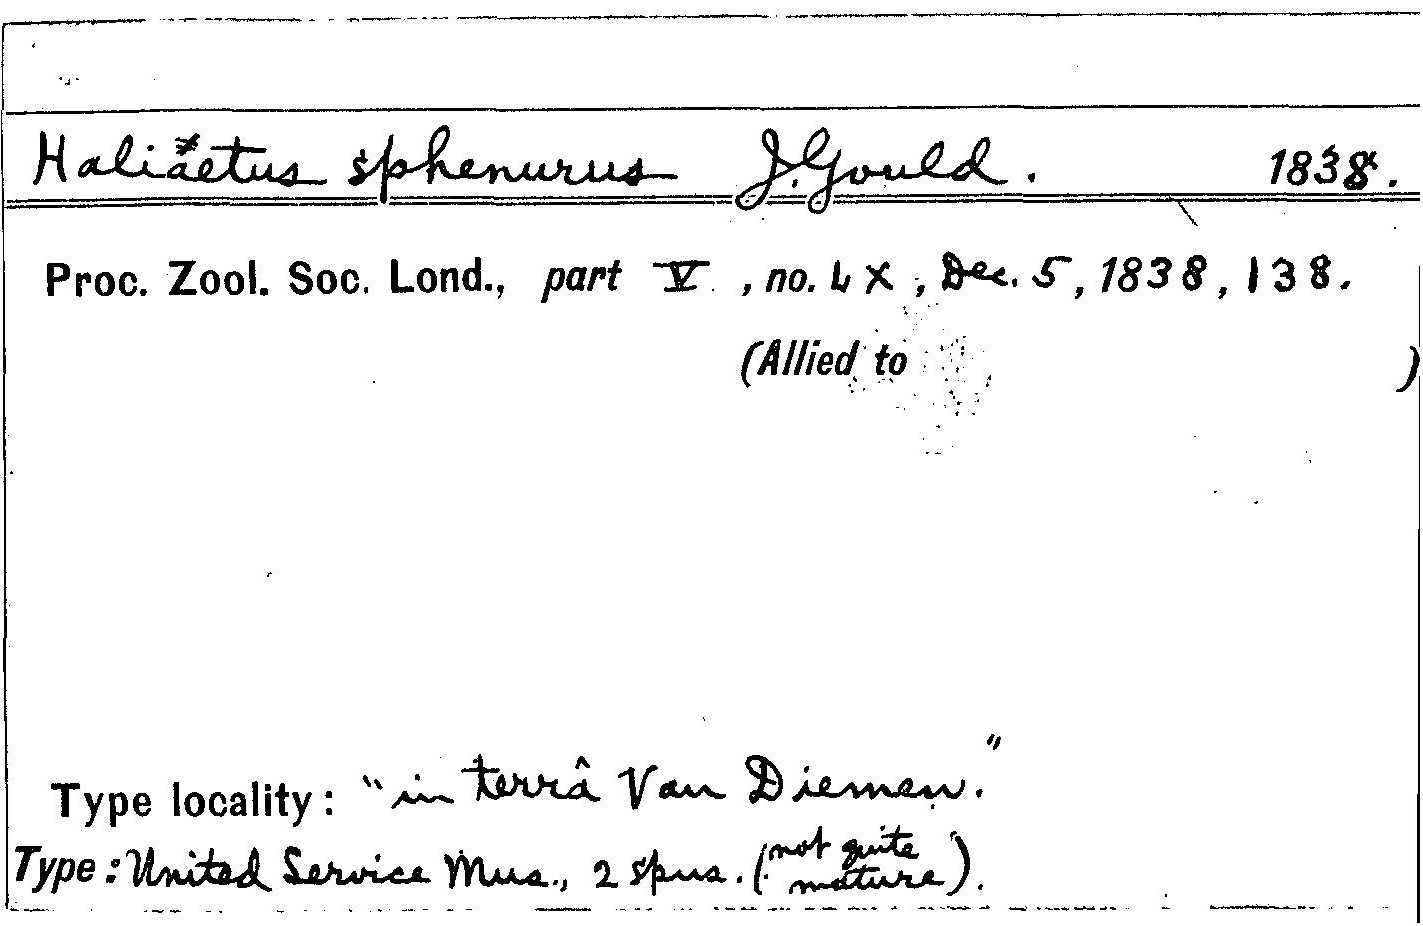 Haliaetus sphenurus J. Gould. 1838.
Proc. Zool. Soc. Lond., part V, no. LX, Dec. 5, 1838, 138.
(Allied to )
Type locality: "in terrâ Van Diemen."
Type: United Service Mus., 2 spns. (not quite mature).